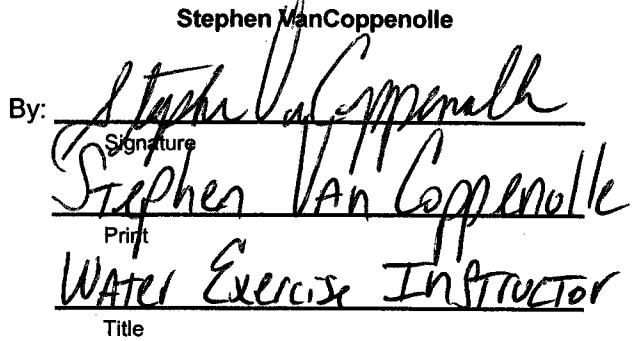 Stephen VanCoppenolle
By: Stephen VanCoppenolle
Signature
Stephen Van Coppenolle
Print
Water Exercise Instructor
Title